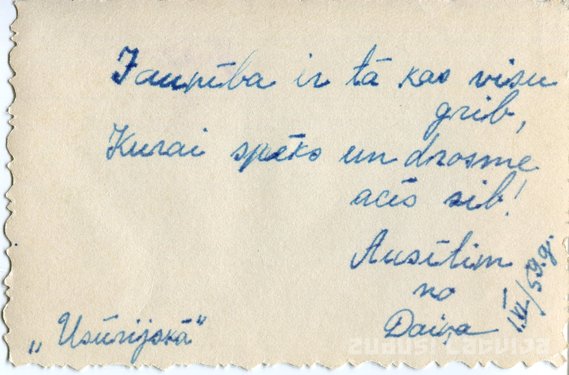 Jaunība ir tā kas visu
grib,
Kurai spēks un drosme
acīs zib!
Ausītim
no
Daiņa
1.XI./59.g.
„Usūrijskā"
zudusilatvija